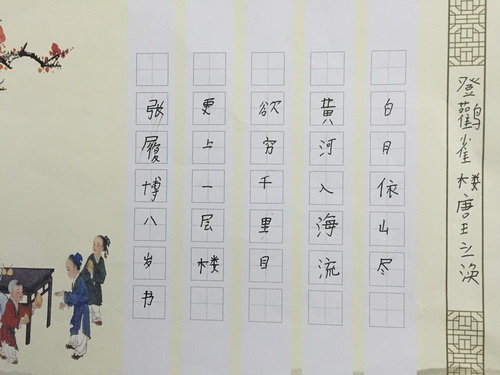 登鹳雀楼唐王之涣
白日依山尽
黄河入海流
欲穷千里目
更上一层楼
张履博八岁书